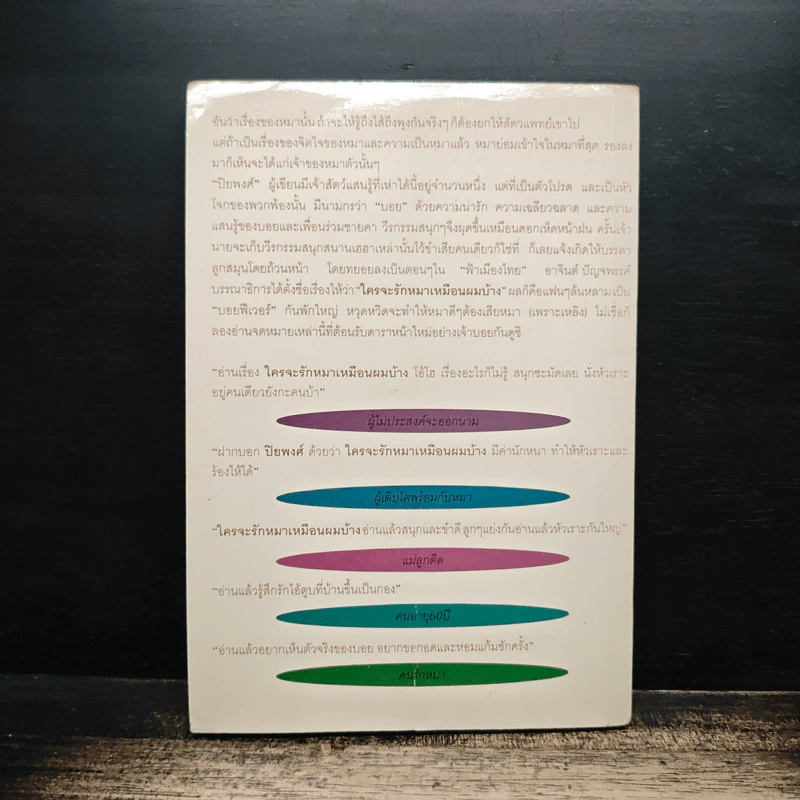 อันว่าเรื่องของหมานั้น ถ้าจะให้รู้ถึงไส้ถึงพุงกันจริงๆ ก็ต้องยกให้สัตวแพทย์เขาไป
แต่ถ้าเป็นเรื่องของจิตใจของหมาและความเป็นหมาแล้ว หมาย่อมเข้าใจในหมาที่สุด รองลง
มาก็เห็นจะได้แก่เจ้าของหมาตัวนั้นๆ
"ปิยพงศ์" ผู้เขียนมีเจ้าสัตว์แสนรู้ที่เห่าได้นี้อยู่จำนวนหนึ่ง แต่ที่เป็นตัวโปรด และเป็นหัว
โจกของพวกพ้องนั้น มีนามกรว่า "บอย" ด้วยความน่ารัก ความเฉลียวฉลาด และความ
แสนรู้ของบอยและเพื่อนร่วมชายคา วีรกรรมสนุกๆจึงผุดขึ้นเหมือนดอกเห็ดหน้าฝน ครั้นเจ้า
นายจะเก็บวีรกรรมสนุกสนานเฮฮาเหล่านั้นไว้ขำเสียคนเดียวก็ใช่ที่ ก็เลยแจ้งเกิดให้บรรดา
ลูกสมุนโดยถ้วนหน้า โดยทยอยลงเป็นตอนๆใน "ฟ้าเมืองไทย" อาจินต์ ปัญจพรรค์
บรรณาธิการได้ตั้งชื่อเรื่องให้ว่า "ใครจะรักหมาเหมือนผมบ้าง" ผลก็คือแฟนๆล้นหลาม เป็น
"บอยฟีเวอร์" กันพักใหญ่ หวุดหวิดจะทำให้หมาดีๆต้องเสียหมา (เพราะเหลิง) ไม่เชื่อก็
ลองอ่านจดหมายเหล่านี้ที่ต้อนรับดาราหน้าใหม่อย่างเจ้าบอยกันดูซิ
"อ่านเรื่อง ใครจะรักหมาเหมือนผมบ้าง โอ้โฮ เรื่องอะไรก็ไม่รู้ สนุกชะมัดเลย นั่งหัวเราะ
อยู่คนเดียวยังกะคนบ้า"
ผู้ไม่ประสงค์จะออกนาม
"ฝากบอก ปิยพงศ์ ด้วยว่า ใครจะรักหมาเหมือนผมบ้าง มีค่านักหนา ทำให้หัวเราะและ
ร้องไห้ได้"
ผู้เติบโตพร้อมกับหมา
"ใครจะรักหมาเหมือนผมบ้าง อ่านแล้วสนุกและขำดี ลูกๆแย่งกันอ่านแล้วหัวเราะกันใหญ่"
แม่ลูกติด
"อ่านแล้วรู้สึกรักไอ้ตูบที่บ้านขึ้นเป็นกอง"
คนอายุ60ปี
"อ่านแล้วอยากเห็นตัวจริงของบอย อยากขอกอดและหอมแก้มซักครั้ง"
คนรักหมา